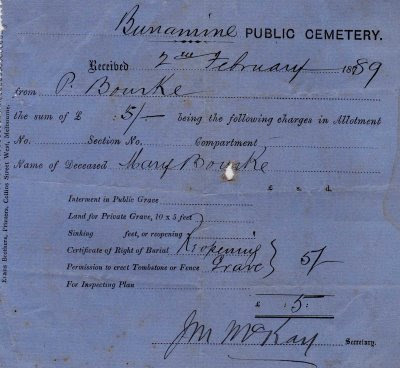 Bunamine PUBLIC CEMETERY.
Received 2nd February 1889
from P. Bourke
the sum of £ : 5/- being the following charges in Allotment
No. Section No. Compartment
Name of Deceased Mary Bourke
£ s. d.
Interment in Public Grave
Land for Private Grave, 10 x 5 feet
Sinking feet, or reopening
Certificate of Right of Burial Reopening
Permission to erect Tombstone or Fence Grave 5/-
For Inspecting Plan
£ : 5 :
J M McKay Secretary.
Evans Brothers, Printers, Collins Street West, Melbourne.